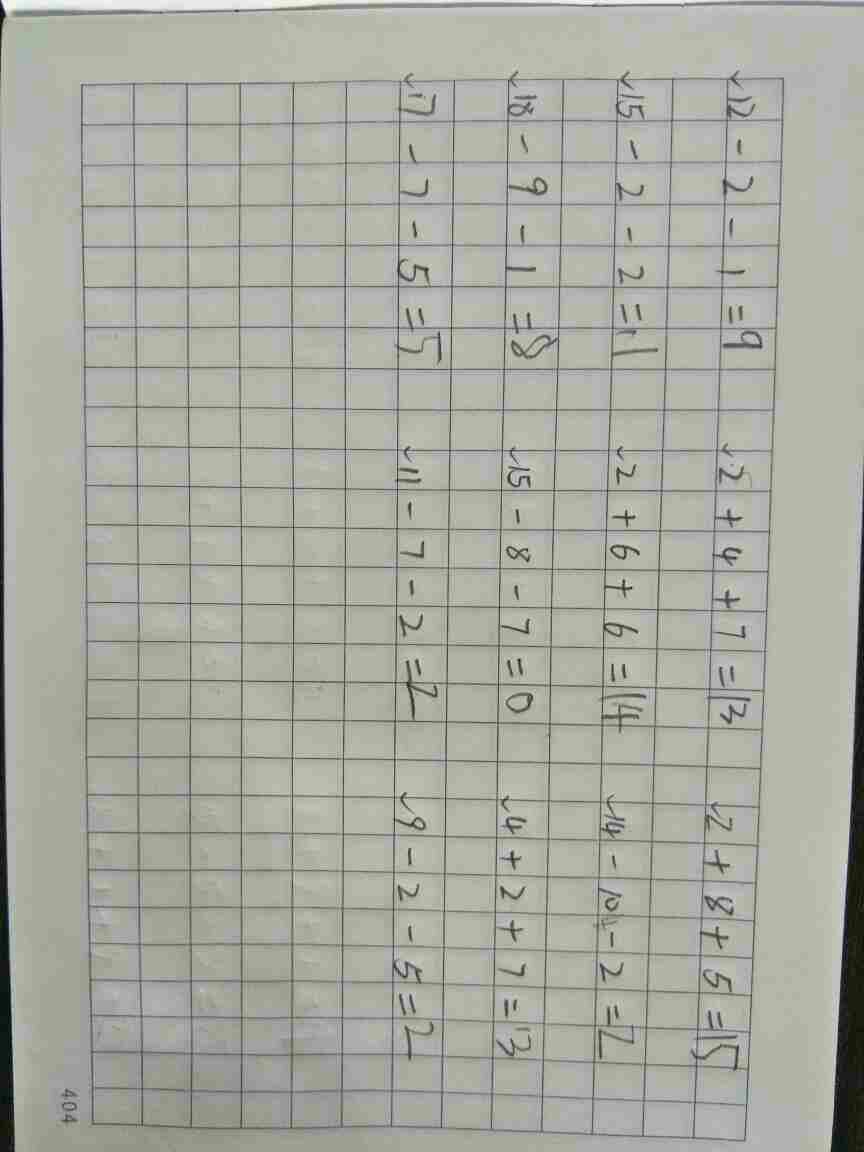 ✓12 - 2 - 1 = 9 ✓2 + 4 + 7 = 13 ✓2 + 8 + 5 = 15
✓15 - 2 - 2 = 11 ✓2 + 6 + 6 = 14 ✓14 - 10 - 2 = 2
✓18 - 9 - 1 = 8 ✓15 - 8 - 7 = 0 ✓4 + 2 + 7 = 13
✓17 - 7 - 5 = 5 ✓11 - 7 - 2 = 2 ✓9 - 2 - 5 = 2
404